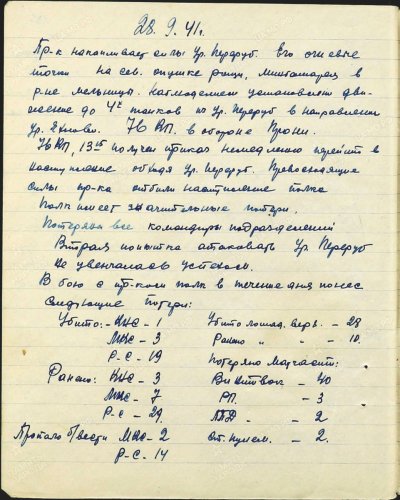 28.9.41г.
Пр-к накапливает силы Ур. Переруб. Его огневые
точки на сев. опушке рощи, минбатарея в
р-не мельницы. Наблюдением установлено дви-
жение до 4х танков из Ур. Переруб в направлении
Ур. 76 КП. в обороне
76 КП, 13 00 получ. приказ немедленно перейти в
наступление обходя Ур. Переруб. Превосходящие
силы пр-ка отбили наступление полка
Полк имеет значительные потери.
Потеряны все командиры подразделений
Вторая попытка атаковать Ур. Переруб
не увенчалась успехом.
В бою с пр-ком полк в течение дня понес
следующие потери:
Убито: - КНС - 1 Убито лошад. верх. - 28
МНС - 3 Ранено " " - 10.
Р-С - 19 Потеряно матчасти:
Ранено: КНС - 3 Винтовок - 40
МНС - 7 РП. - 3
Р-С - 29. ППД - 2
Пропало б/вести МНС - 2 ст. пулем. - 2.
Р-С - 14